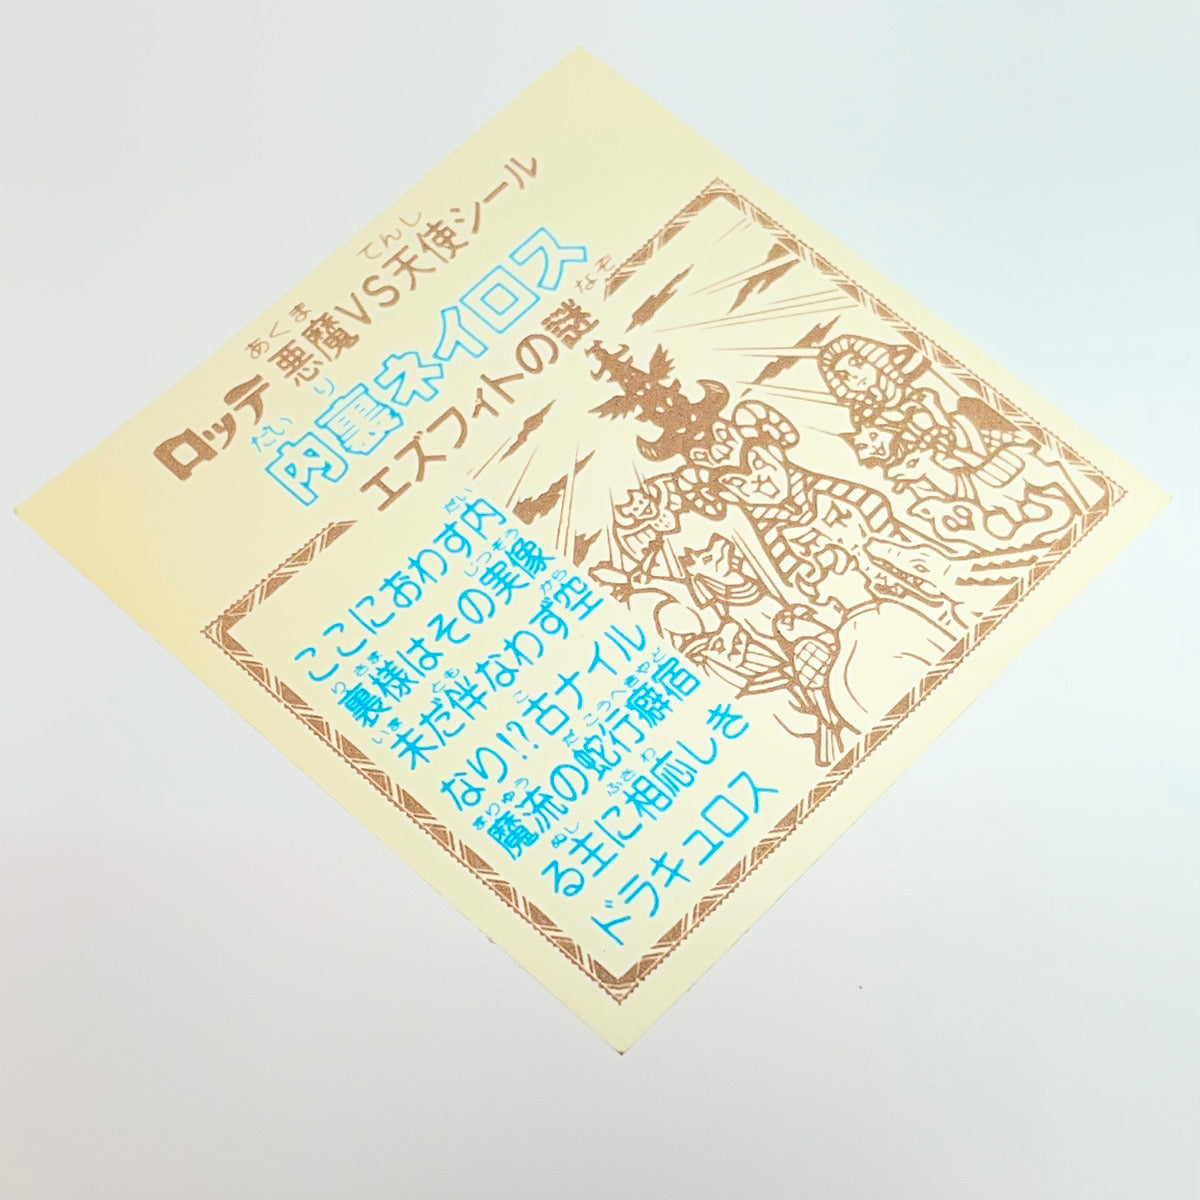 ロッテ 悪魔VS天使シール
内裏ネイロス
エズフィトの謎
ここにおわす内
裏様はその実像
未だ伴なわず空
なり!?古ナイル
魔流の蛇行癖宿
る主に相応しき
ドラキュロス